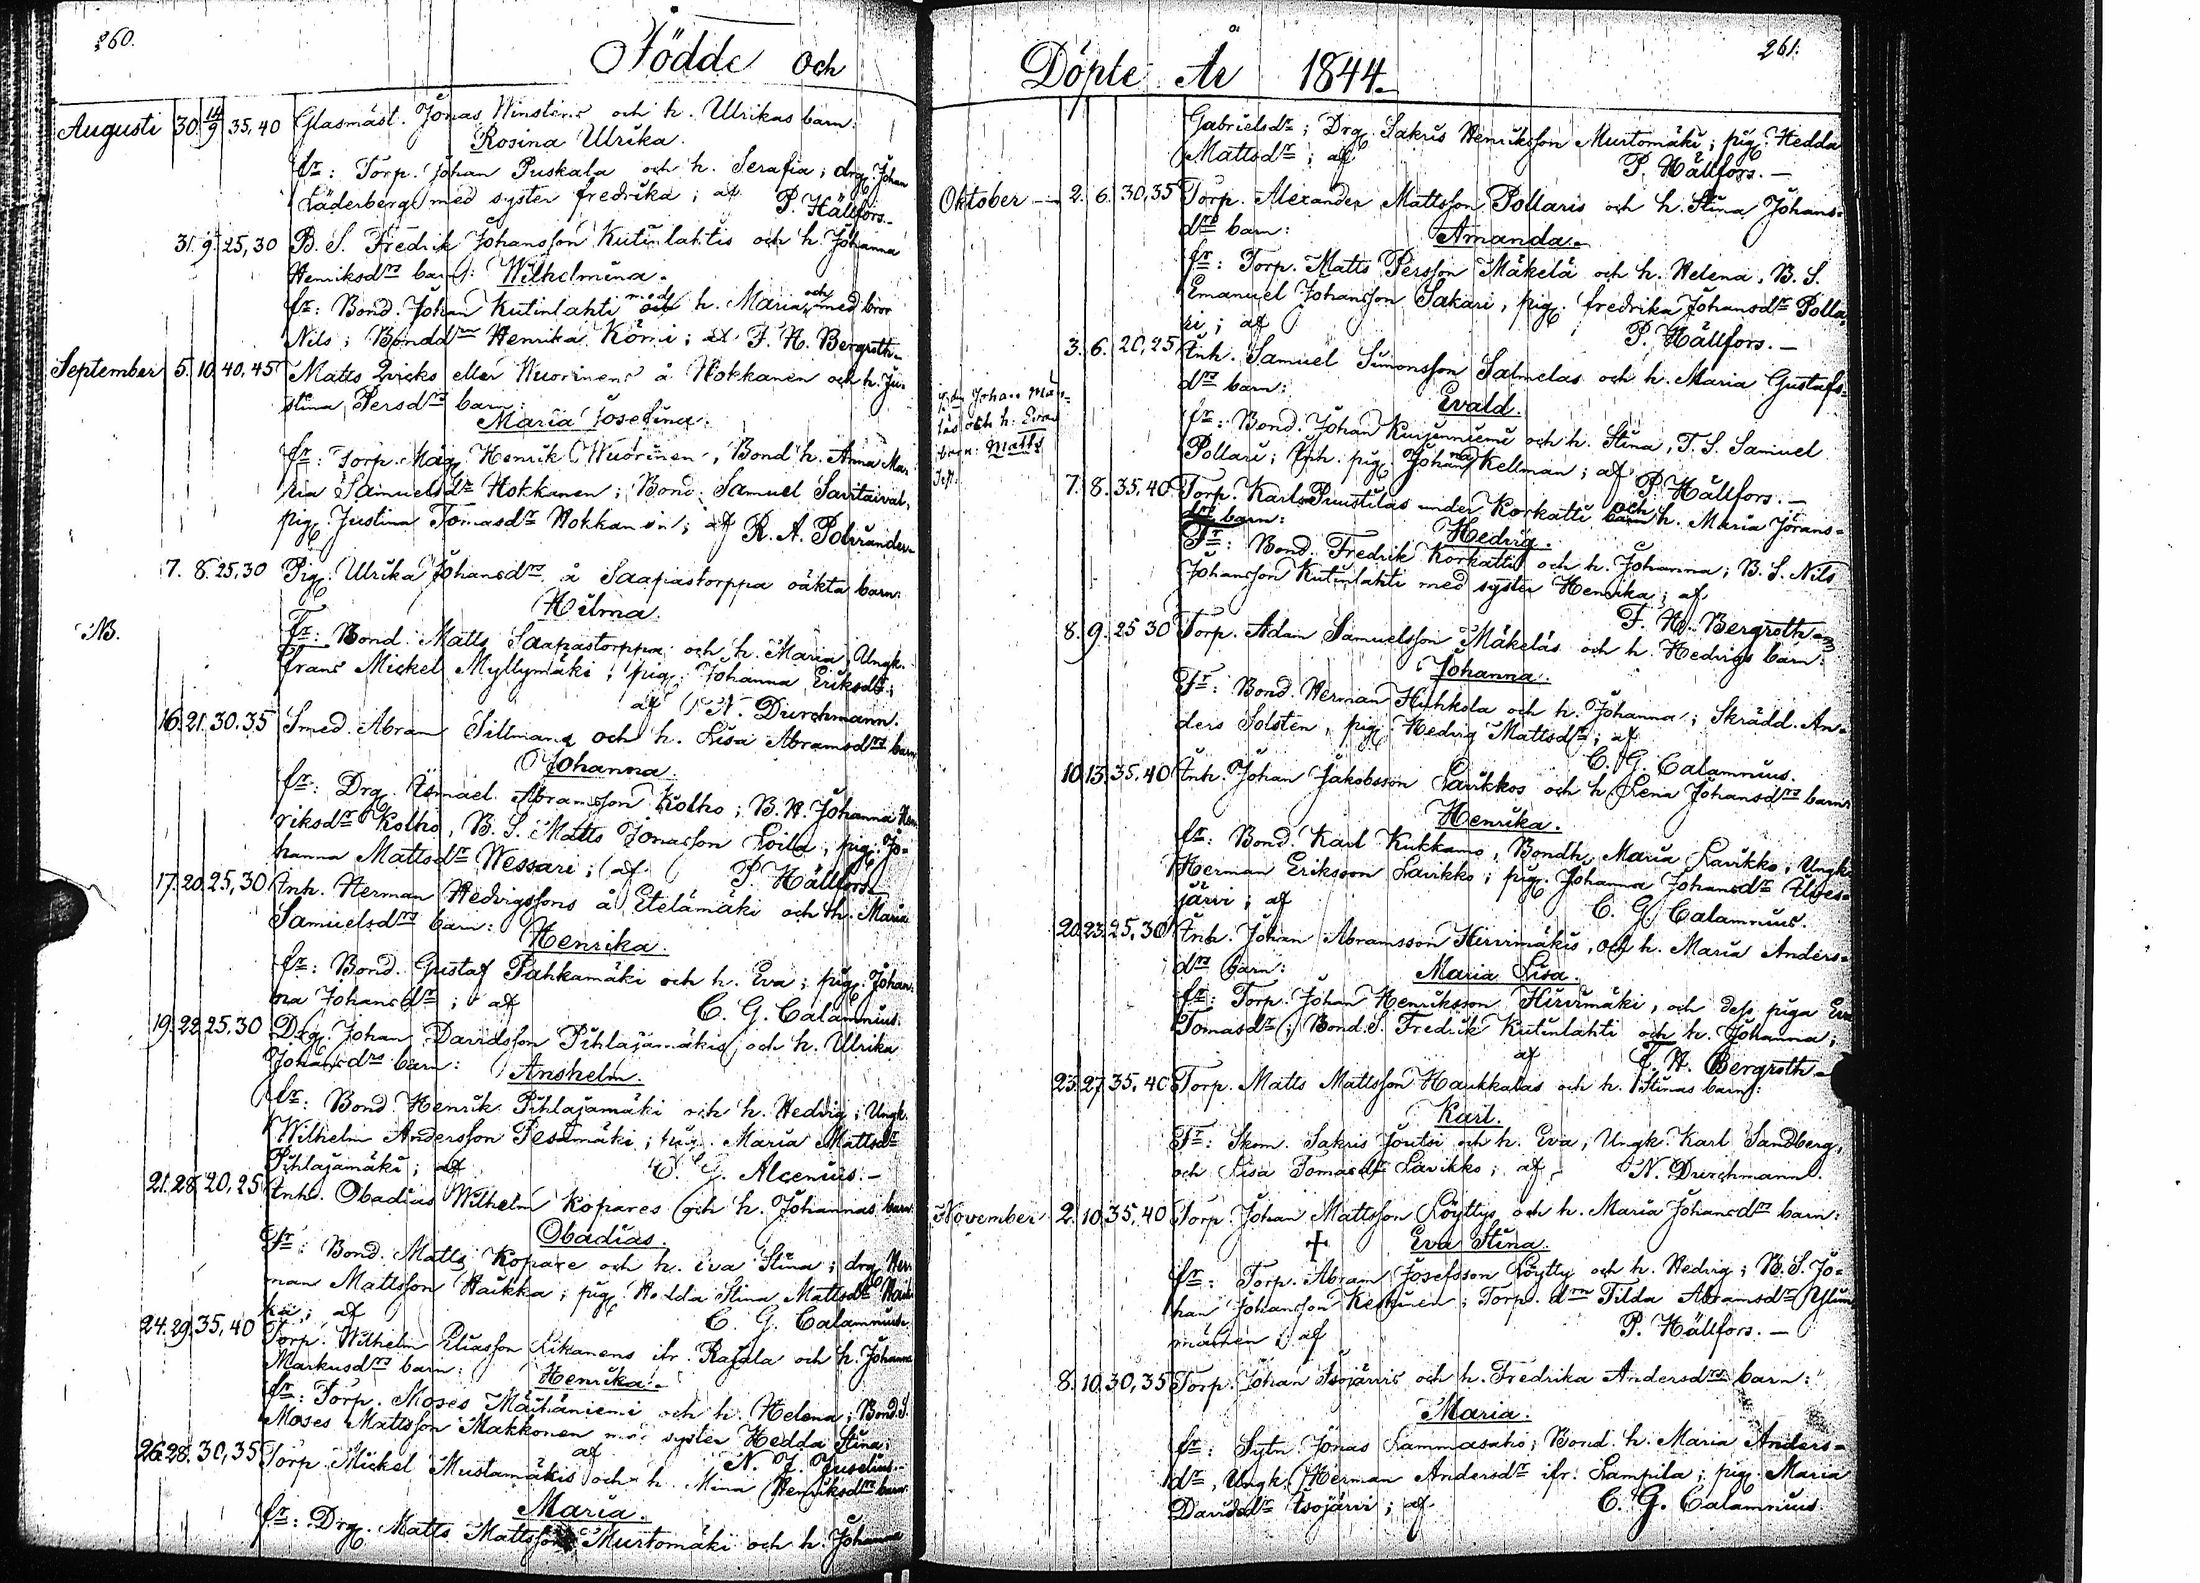 260.
Födde och
Augusti 30. 14/9 35,40 Glasmäst. Jonas Winstens och h. Ulrikas barn:
Rosina Ulrika.
fr: Torp. Johan Puskala och h. Serafia; drg. Johan
Läderberg med syster fredrika; af P. Hällfors.
31. 9. 25,30 B. S. Fredrik Johansson Kutinlahtis och h. Johanna
Henriksdrs barn: Wilhelmina.
fr: Bond. Johan Kutinlahti med h. Maria och med bror
Nils; Bonddr Henrika Körni; af F. H. Bergroth.
September 5. 10. 40,45 Matts eller Wuorinens å Hokkanen och h. Ju-
stina Persdrs barn:
Maria Josefina.
fr: Torp. Måg Henrik Wuorinen, Bond h. Anna Ma-
ria Samuelsdr Hokkanen; Bond. Samuel Savitaival,
pig. Justina Tomasdr Hokkanen; af R. A. Polviander
7. 8. 25,30 Pig. Ulrika Johansdrs å Saapastorppa oäkta barn:
Hilma.
NB. Fr: Bond. Matts Saapastorppa och h. Maria, Ungk.
frans Mickel Myllymäki; pig. Johanna Eriksdr;
af N. Durchmann.
16. 21. 30.35 Smed. Abram Sillmans och h. Lisa Abramsdrs barn
Johanna.
fr: Drg. Ismael Abramsson Kolho; B. H. Johanna Hen-
riksdr Kolho, B. S. Matts Jonasson Loila, pig. Jo-
hanna Mattsdr Wessari; af P. Hällfors.
17. 20. 25,30 Inh. Herman Hedvigssons å Etelämäki och h. Maria
Samuelsdrs barn: Henrika.
fr: Bond. Gustaf Pahkamäki och h. Eva; pig. Johan-
na Johansdr; af C. G. Calamnius.
19. 22. 25,30 Drg. Johan Davidsson Pihlajamäkis och h. Ulrika
Johansdrs barn: Anshelm.
fr: Bond. Henrik Pihlajamäki och h. Hedvig; Ungk.
Wilhelm Andersson Pesämäki; pig. Maria Mattsdr
Pihlajamäki; af Alcenius.-
21. 28. 20,25 Inh. Obadias Wilhelm Kopares och h. Johannas barn
Obadias.
Fr: Bond. Matts Kopare och h. Eva Stina; drg. Her-
man Mattsson Haikka; pig. Hedda Stina Mattsdr Haik-
ka; af C. G. Calamnius.
24. 29. 35,40 Torp. Wilhelm Eliasson Likanens ifr. Rajala och h. Johanna
Markusdrs barn: Henrika.
fr: Torp. Moses Mäihäniemi och h. Helena; Bond. S.
Moses Mattsson Makkonen med syster Hedda Stina;
af N. J. Juselius.
26. 28. 30,35 Torp. Mickel Mustamäkis och h. Mina Henriksdrs barn
Maria.
fr: Drg. Matts Mattsson Murtomäki och h. Johanna
261.
Döpte År 1844.
Gabrielsdr; Drg. Sakris Henriksson Murtomäki; pig. Hedda
Mattsdr; af P. Hällfors.-
Oktober 2. 6. 30,35 Torp. Alexander Mattsson Pollaris och h. Stina Johans-
drs barn: Amanda.
fr: Torp. Matts Persson Mäkelä och h. Helena, B. S.
Emanuel Johansson Sakari, pig. fredrika Johansdr Polla-
ri; af P. Hällfors.-
3. 6. 20,25 Inh. Samuel Simonsson Salmelas och h. Maria Gustafs-
drs barn: Evald.
fr: Bond. Johan Kurjenniemi och h. Stina, T. S. Samuel
Pollari; Inh. pig. Johanna Kellman; af P. Hällfors.-
Johan
och h.
barn: Matts
7. 8. 35,40 Torp. Karl Puustilas under Korkatti och h. Maria Jörans-
drs barn: Hedvig.
Fr: Bond. Fredrik Korkatti och h. Johanna; B. S. Nils
Johansson Kutinlahti med syster Henrika; af
F. H. Bergroth
8. 9. 25 30 Torp. Adam Samuelsson Mäkeläs och h. Hedvigs barn:
Johanna.
Fr: Bond. Herman Huhkola och h. Johanna; Skrädd. An-
ders Solsten, pig. Hedvig Mattsdr; af
C. G. Calamnius.
10. 13. 35,40 Inh. Johan Jakobsson Lavikkos och h. Lena Johansdrs barn:
Henrika.
fr: Bond. Karl Kukkamo, Bondh. Maria Lavikko; Ungk.
Herman Eriksson Lavikko; pig. Johanna Johansdr Ules-
järvi; af C. G. Calamnius.
20. 23. 25,30 Inh. Johan Abramsson Hirvimäkis, och h. Maria Anders-
drs barn: Maria Lisa.
fr: Torp. Johan Henriksson Hirvimäki, och dess piga Eva
Tomasdr; Bond. S. Fredrik Kutinlahti och h. Johanna;
af F. H. Bergroth
23. 27. 35,40 Torp. Matts Mattsson Haukkalas och h. Stinas barn:
Karl.
Fr: Skom. Sakris Joutsi och h. Eva, Ungk. Karl Sandberg,
och Lisa Tomasdr Lavikko; af N. Durchmann.
November 2. 10. 35,40 Torp. Johan Mattsson Löyttys och h. Maria Johansdrs barn:
+ Eva Stina.
fr: Torp. Abram Josefsson Löytty och h. Hedvig; B. S. Jo-
han Johansson Keskinen; Torp. dr Tilda Abramsdr Ylim-
mäinen; af P. Hällfors.-
8. 10. 30,35 Torp. Johan Isojärvis och h. Fredrika Andersdrs barn:
Maria.
fr: Sytn. Jonas Lammasaho; Bond. h. Maria Anders-
dr, Ungk. Herman Andersdr ifr. Lampila; pig. Maria
Davidsdr Isojärvi; af C. G. Calamnius